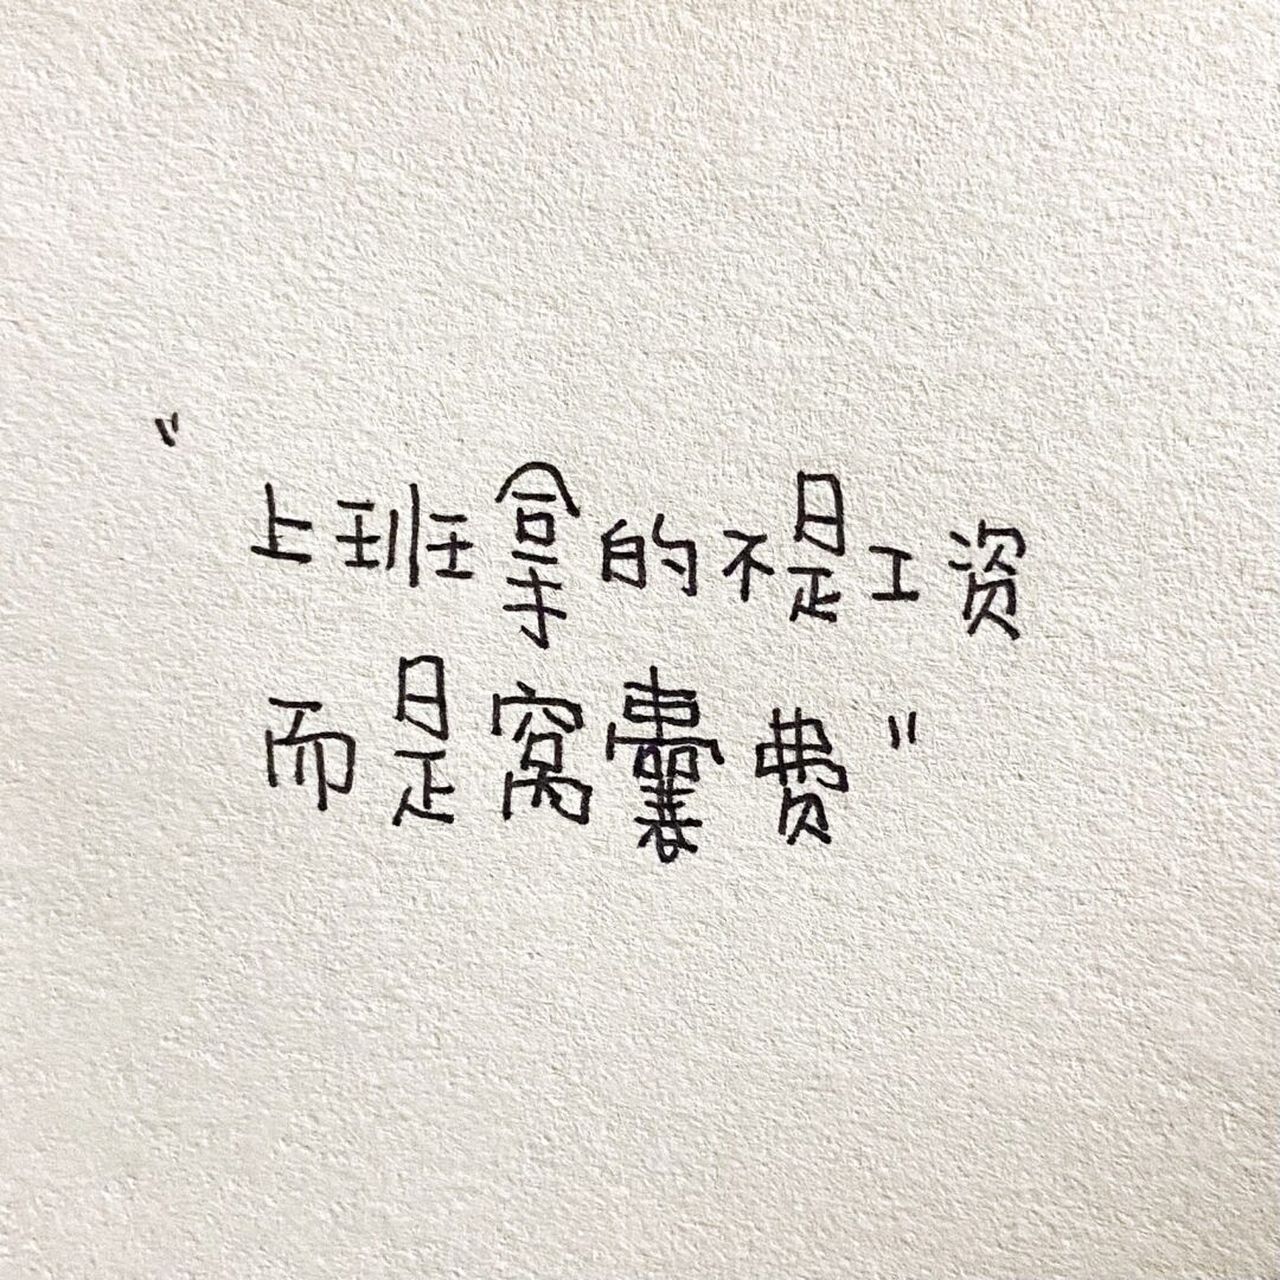 "上班拿的不是工资
而是窝囊费"